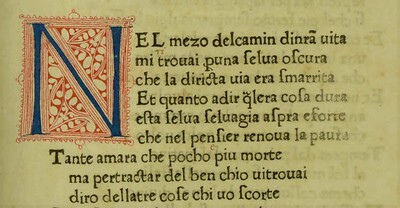 NEL mezo delcamin dinr̃a uita
mi trouai ꝑuna ſelua oſcura
che la diricta uia era ſmarrita
Et quanto adir q̃lera coſa dura
eſta ſelua ſeluagia aſpra eforte
che nel penſier renoua la paura
Tante amara che pocho piu morte
ma pertractar del ben chio uitrouai
diro dellatre coſe chi uo ſcorte